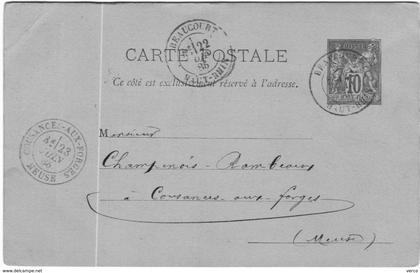 BEAUCOURT
22
85
HAUT-RHIN
CARTE POSTALE
Ce côté est exclusivement réservé à l'adresse.
POSTE
10
HAUT-RHIN
COUSANCES-AUX-FORGES
23
JUIN
MEUSE
Monsieur
Champenois-Rambeaux
à Cousances-aux-forges
(Meuse)